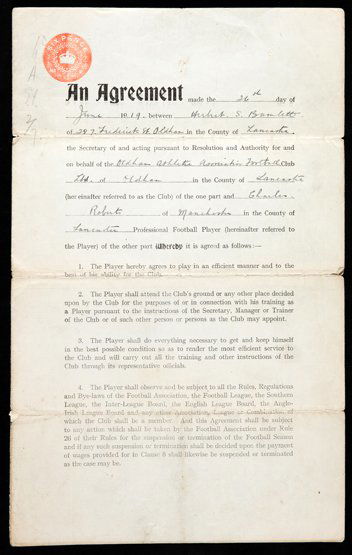 SIX PENCE
An Agreement made the 26th day of
June 1919 between Herbert S. Bamlett
of 247 Frederick St. Oldham in the County of Lancaster,
the Secretary of and acting pursuant to Resolution and Authority for and
on behalf of the Oldham Athletic Association Football Club
Ltd. of Oldham in the County of Lancaster
(hereinafter referred to as the Club) of the one part and Charles
Roberts of Manchester in the County of
Lancaster Professional Football Player (hereinafter referred to
the Player) of the other part Whereby it is agreed as follows:—
1. The Player hereby agrees to play in an efficient manner and to the
best of his ability for the Club.
2. The Player shall attend the Club's ground or any other place decided
upon by the Club for the purposes of or in connection with his training as
a Player pursuant to the instructions of the Secretary, Manager or Trainer
of the Club or of such other person or persons as the Club may appoint.
3. The Player shall do everything necessary to get and keep himself
in the best possible condition so as to render the most efficient service to
the Club and will carry out all the training and other instructions of the
Club through its representative officials.
4. The Player shall observe and be subject to all the Rules, Regulations
and Bye-laws of the Football Association, the Football League, the Southern
League, the Inter-League Board, the English League Board, the Anglo-
Irish League Board and any other Association, League or Combination of
which the Club shall be a member. And this Agreement shall be subject
to any action which shall be taken by the Football Association under Rule
26 of their Rules for the suspension or termination of the Football Season
and if any such suspension or termination shall be decided upon the payment
of wages provided for in Clause 6 shall likewise be suspended or terminated
as the case may be.